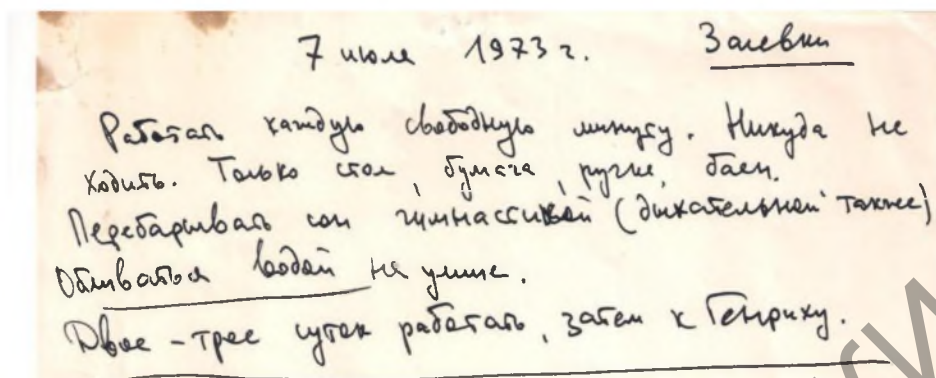 7 июля 1973 г. Залевки
Работать каждую свободную минуту. Никуда не
ходить. Только стол, бумага, ручка, баян.
Перебарывать сон гимнастикой (дыхательной также)
Обливаться водой на улице.
Двое - трое суток работать, затем к Генриху.